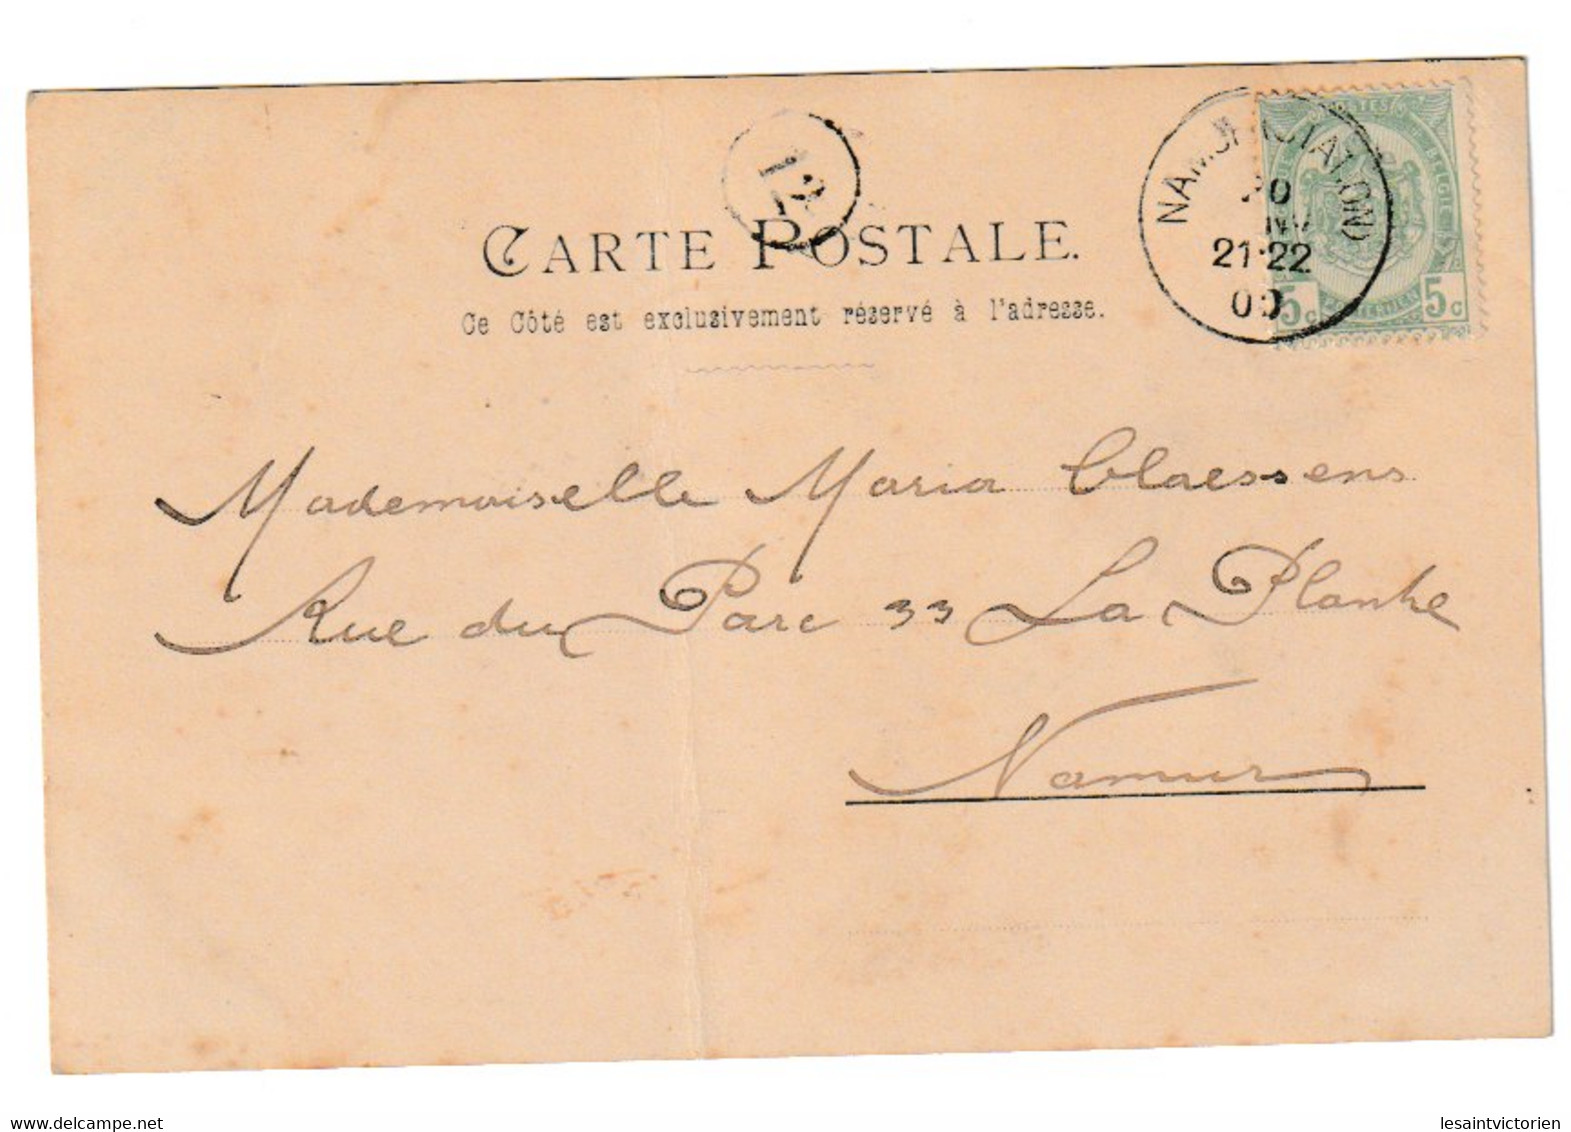 12
CARTE POSTALE.
Ce Côté est exclusivement réservé à l'adresse.
NAMUR (STATION)
21-22
00
POSTES
BELGIQUE
5c 5c
Mademoiselle Maria Claessens
Rue du Parc 33 La Plante
Namur
Delcampe.net
lesaintvictorien